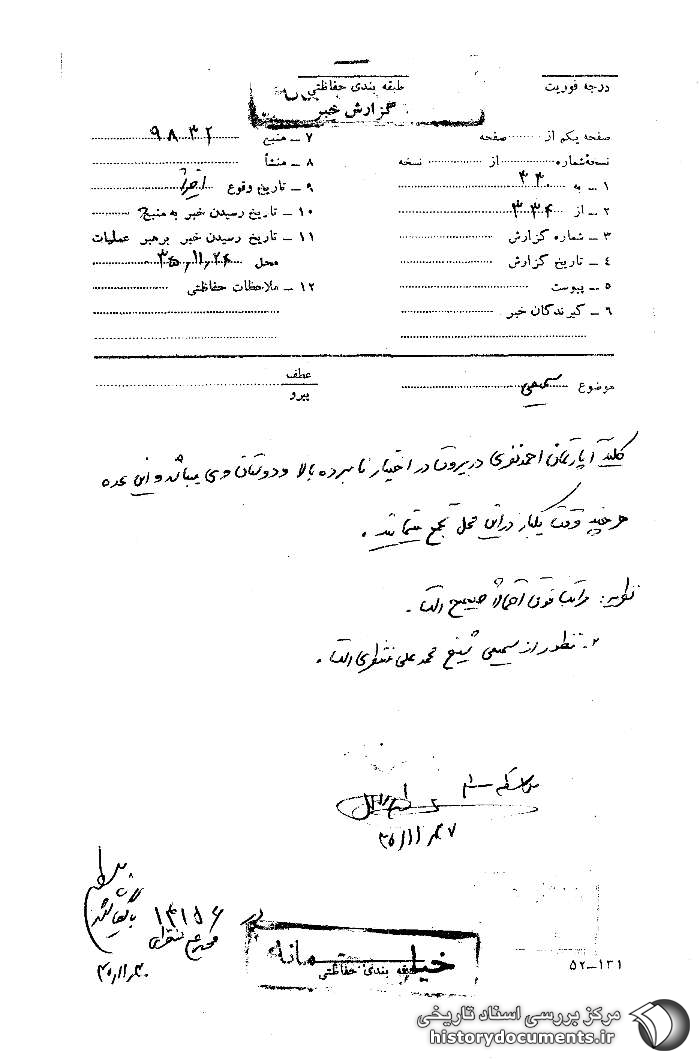 درجه فوریت
طبقه بندی حفاظتی
گزارش خبر
صفحه یکم از ........ صفحه
نسخه شماره ........ از ........ نسخه
۱ – به ۳۳۰
۲ – از ۳۳۴
۳ – شماره گزارش
۴ – تاریخ گزارش
۵ – پیوست
۶ – گیرندگان خبر
۷ – منبع ۹۸۳۲
۸ – منشأ
۹ – تاریخ وقوع اخیراً
۱۰ – تاریخ رسیدن خبر به منبع
۱۱ – تاریخ رسیدن خبر برهبر عملیات
محل ۳۵،۱۱،۲۴
۱۲ – ملاحظات حفاظتی
موضوع سمیعی
عطف
پیرو
کلید آپارتمان احمد نفری در بیروت در اختیار نامبرده بالا و دوستان وی میباشد و این عده
هر چند وقت یکبار در این محل تجمع مینمایند.
نظریه: مراتب فوق احتمالاً صحیح است.
۲- منظور از سمیعی شیخ محمد علی منتظری است.
بایگانی شود
۱۳۱۵۶
خیلی محرمانه
طبقه بندی حفاظتی
۵۲–۱۳۱
مرکز بررسی اسناد تاریخی
historydocuments.ir